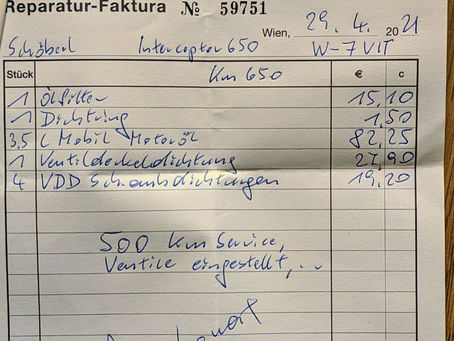 Reparatur-Faktura № 59751
Wien, 29. 4. 2021
Schöberl Interceptor 650 W-7VIT
Stück Km 650 € c
1 Ölfilter 15,10
1 Dichtring 1,50
3,5 L Mobil Motoröl 82,25
1 Ventildeckeldichtung 27,90
4 VDD Schraubdichtungen 19,20
500 Km Service,
Ventile eingestellt,..